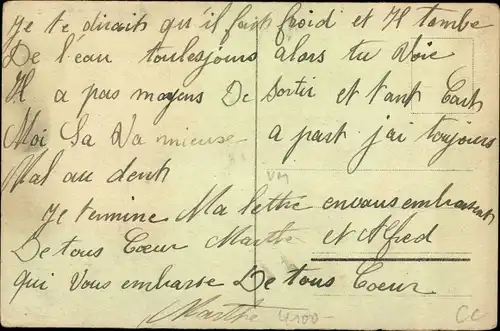 Je te dirait qu'il fait froid et Il tombe
De l'eau toulesjours alors tu Voie
Il a pas moyens De Sortir et tant Cart
Moi Sa Va mieuse a part j'ai toujours
Mal au dent
Je termine Ma lettre en vous embrasent
De tous Coeur Marthe et Alfred
qui Vous embarse De tous Coeur
Marthe
4,00
CC